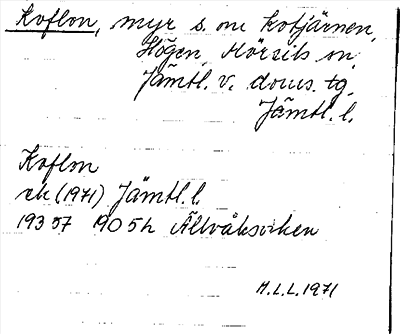 Koflon, myr s. om kotjärnen,
Högen, Mörsils sn,
Jämtl. v. doms. tg.
Jämtl. l.
Koflon
ek (1971) Jämtl. l.
193 57 190 5h Ällvåksviken
M.L.L. 1971